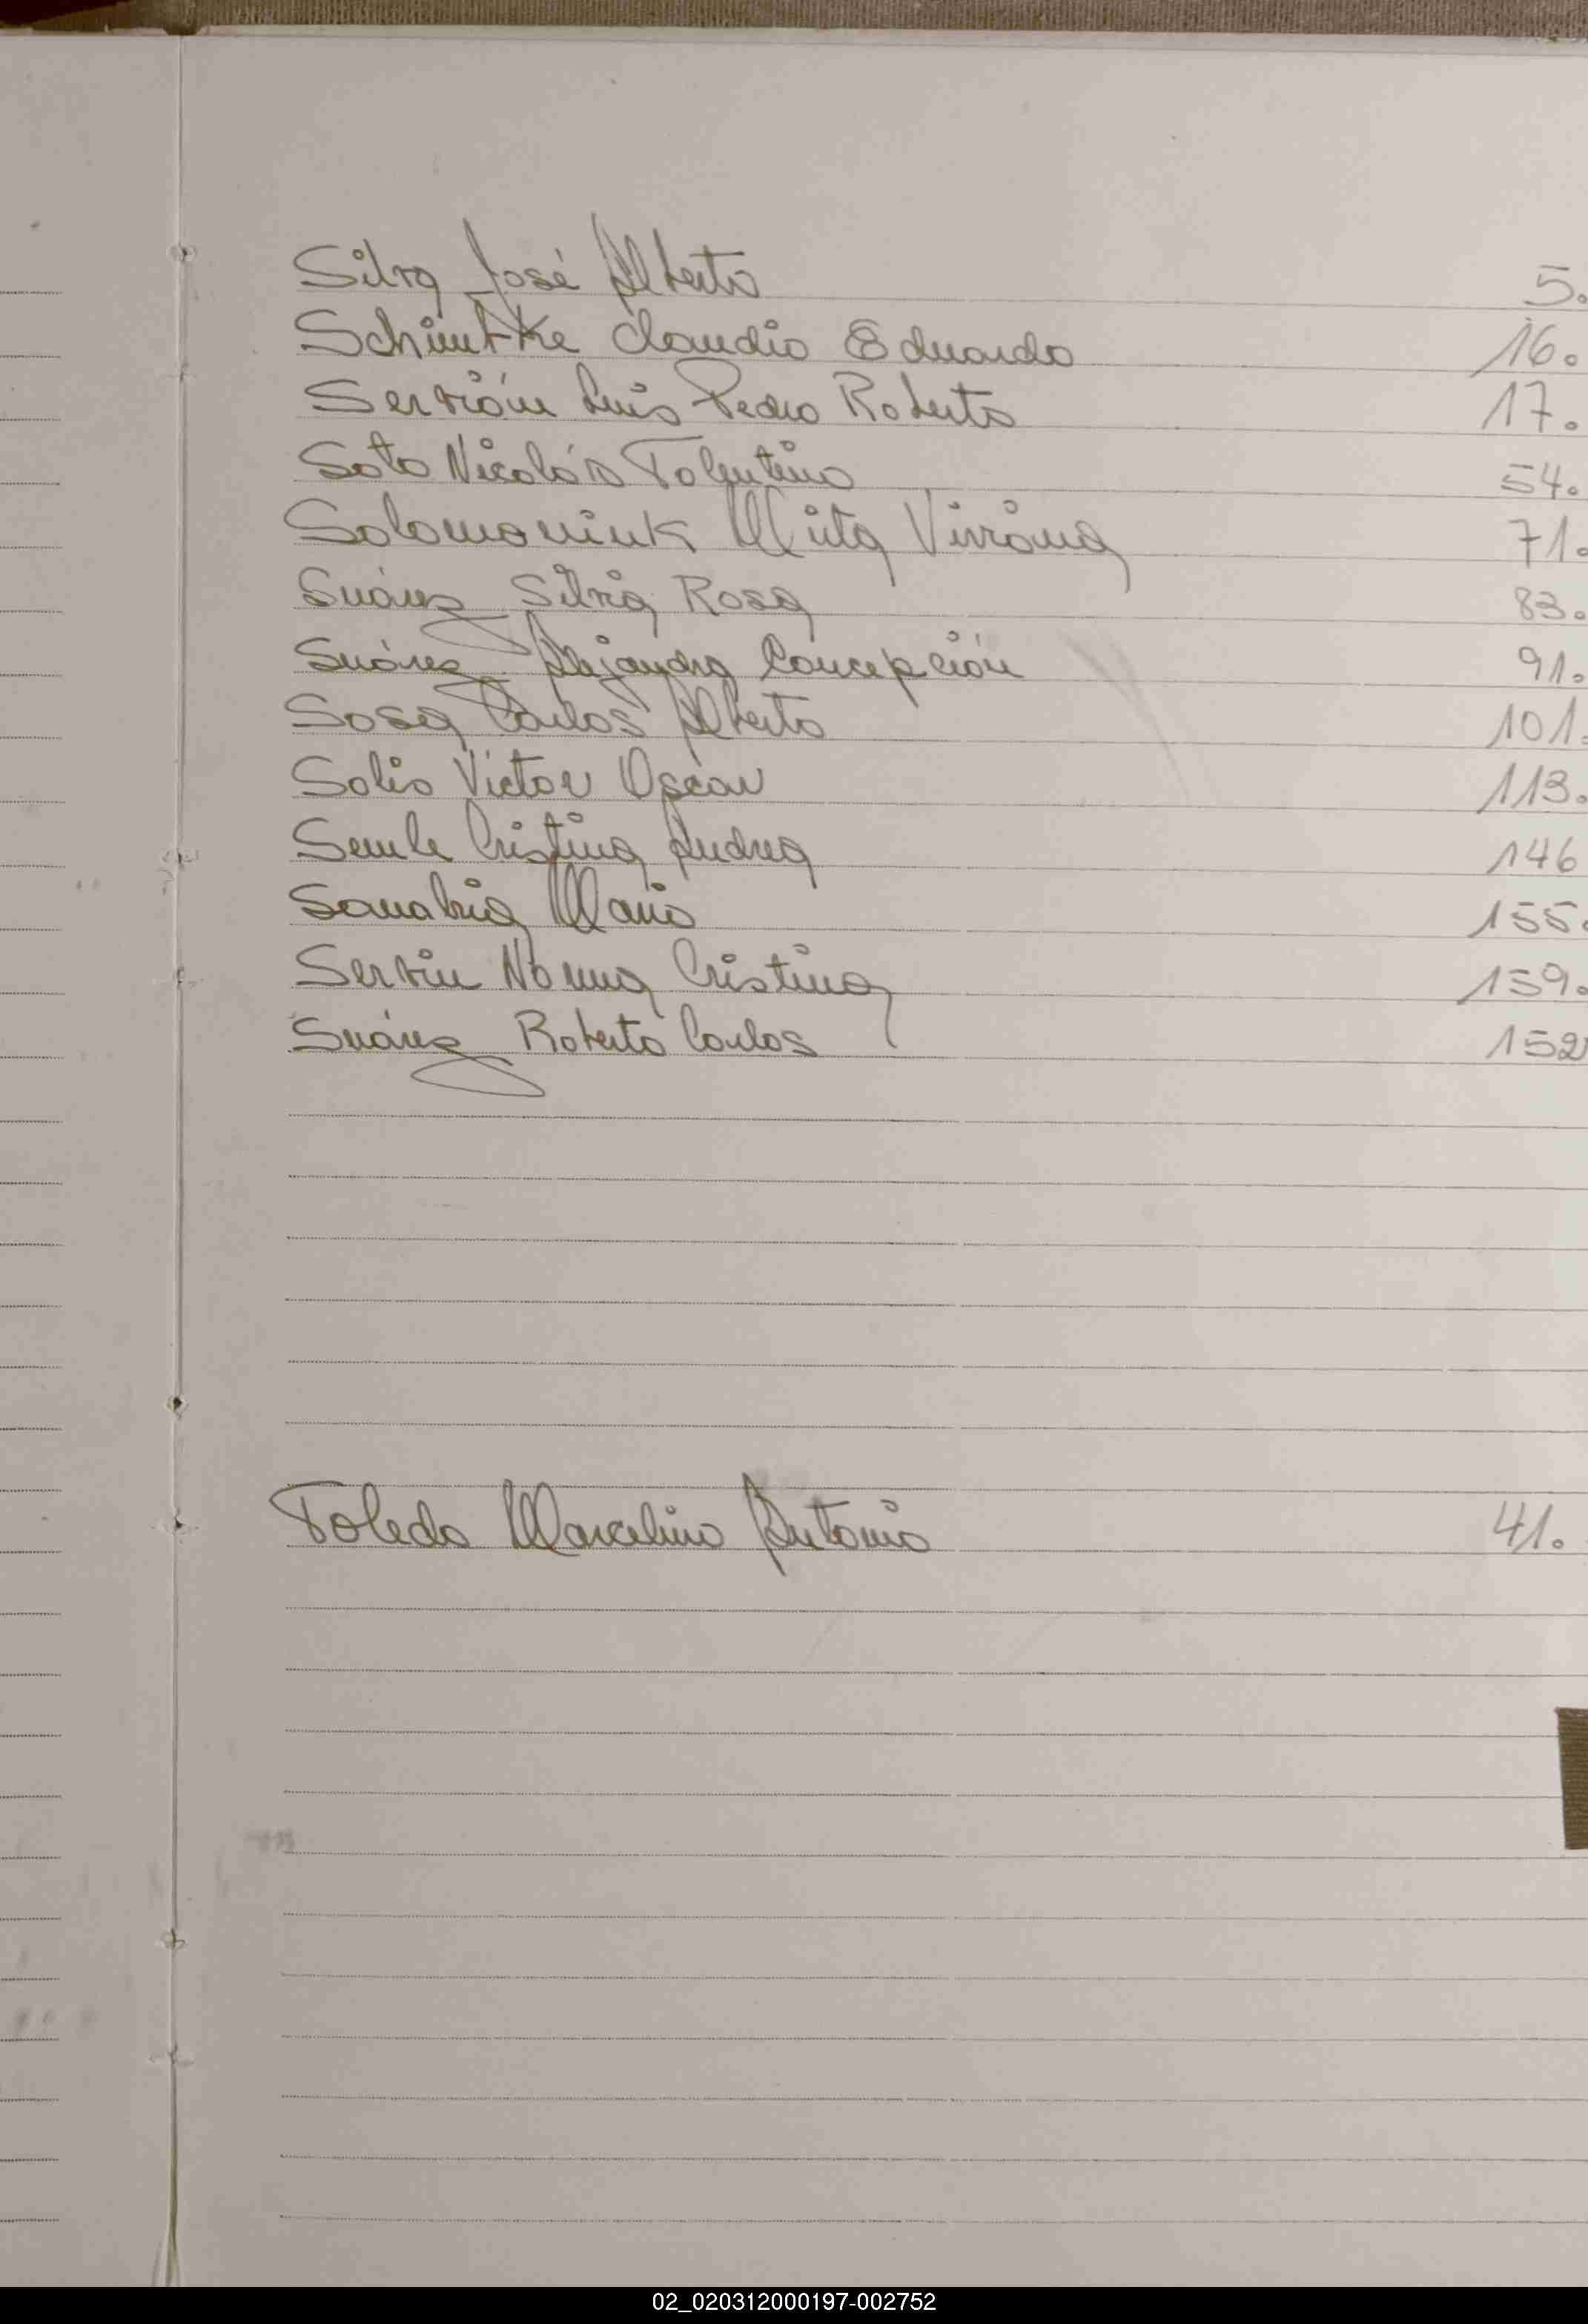 Silva José Alberto 5.
Schimtke Claudio Eduardo 16.
Servión Luis Pedro Roberto 17.
Soto Nicolás Tolentino 54.
Solomoniuk Mirta Viviana 71.
Suárez Silvia Rosa 83.
Suárez Alejandra Concepción 91.
Sosa Carlos Alberto 101.
Solis Victor Oscar 113.
Cristina Andrea 146
Sanabria Mario 155.
Servin Norma Cristina 159.
Suárez Roberto Carlos 152
Toledo Marcelino Antonio 41.
02_020312000197-002752